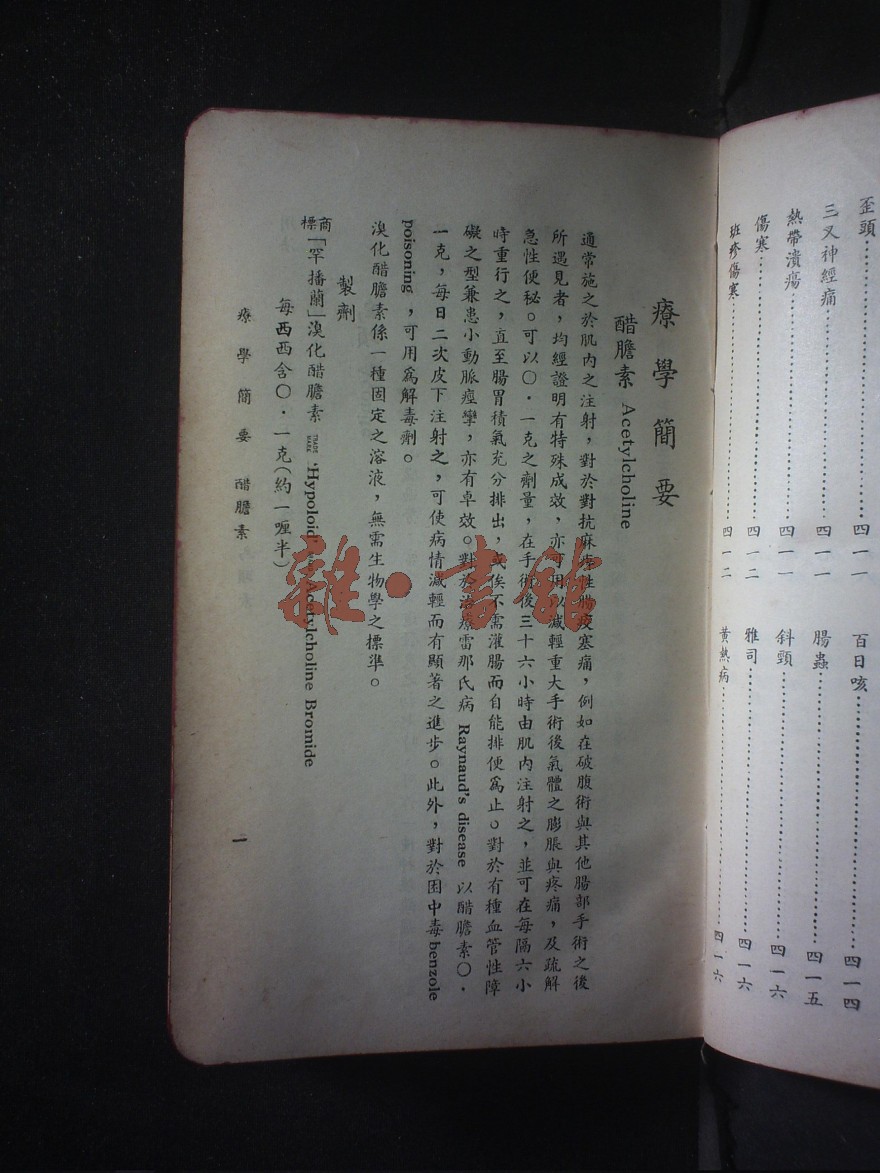 歪頭……四一一
三叉神經痛……四一一
熱帶潰瘍……四一一
傷寒……四一二
斑疹傷寒……四一二
百日咳……四一四
腸蟲……四一五
斜頸……四一六
雅司……四一六
黃熱病……四一六
療學簡要
醋膽素 Acetylcholine
通常施之於肌內之注射，對於對抗麻痺性腸痠塞痛，例如在破腹術與其他腸部手術之後
所遇見者，均經證明有特殊成效，亦可用以減輕重大手術後氣體之膨脹與疼痛，及疏解
急性便秘。可以〇·一克之劑量，在手術後三十六小時由肌內注射之，並可在每隔六小
時重行之，直至腸胃積氣充分排出，或俟不需灌腸而自能排便爲止。對於有種血管性障
礙之型兼患小動脈痙攣，亦有卓效。對於治療雷那氏病 Raynaud's disease 以醋膽素〇·
一克，每日二次皮下注射之，可使病情減輕而有顯著之進步。此外，對於因中毒 benzole
poisoning，可用爲解毒劑。
溴化醋膽素係一種固定之溶液，無需生物學之標準。
製劑
商標「罕播蘭」溴化醋膽素 TRADE MARK 'Hypoloid' Acetylcholine Bromide
每西西含〇·一克（約一喱半）
療學簡要 醋膽素
一
雜·書館